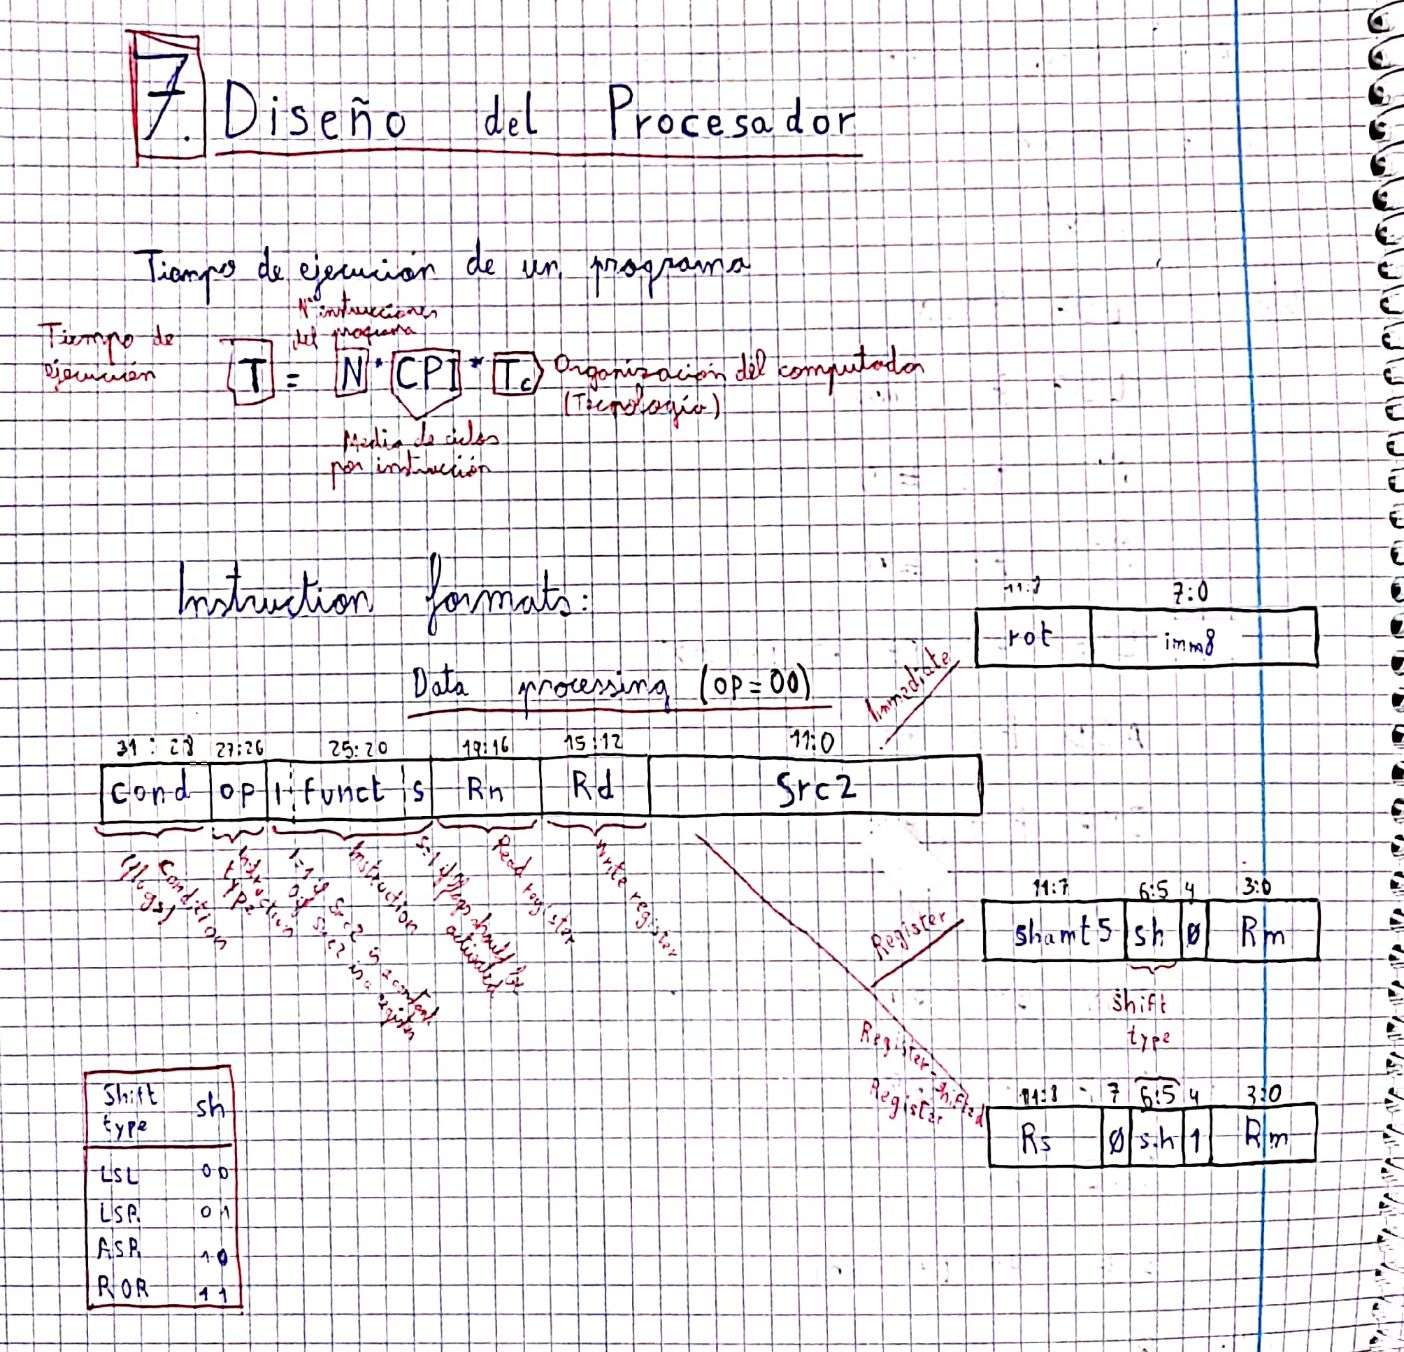 7. Diseño del Procesador
Tiempo de ejecución de un programa
Tiempo de
ejecución
N° instrucciones
del programa
T = N * CPI * Tc
Organización del computador
(Tecnología)
Media de ciclos
por instrucción
Instruction formats:
Data processing (op=00)
31:28 27:26 25:20 19:16 15:12 11:0
cond op I funct s Rn Rd Src2
Condition
(flags)
Instruction
type
I=1 if Src2 is a constant
0 if Src2 is a register
Instruction
S=1 if flags should be
activated
Read register
Write register
Immediate
11:8 7:0
rot imm8
Register
11:7 6:5 4 3:0
shamt5 sh 0 Rm
shift
type
Register-shifted
Register
11:8 7 6:5 4 3:0
Rs 0 sh 1 Rm
Shift
type sh
LSL 00
LSR 01
ASR 10
ROR 11